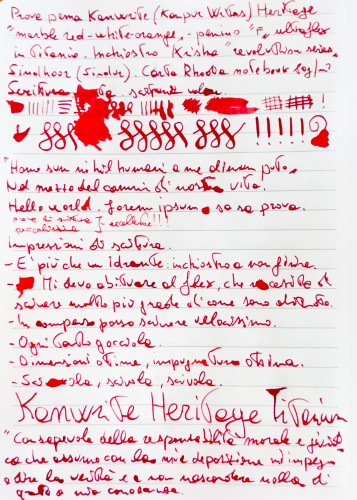 Prova penna Kanwrite (Kanpur Writers) Heritage
"marble red-white-orange", pennino "F" ultraflex
in titanio. Inchiostro "Krishna" revolution series,
Sindhoor (Sindur). Carta Rhodia notebook
Scrittura
"Homo sum nihil humani a me alienum puto"
Nel mezzo del cammin di nostra vita.
Hello world. Lorem ipsum sa sa prova.
prove di scrittura eccellente!!!
Impressioni di scrittura.
- E' più che un idrante. inchiostro a non finire.
- Mi devo abituare al flex, che necessita di
scrivere molto più grande di come sono abituato.
- In compenso posso scrivere velocissimo.
- Ogni tanto gocciola.
- Dimensioni ottime, impugnatura ottima.
- Scivola, scivola, scivola.
Kanwrite Heritage Titanium
"Consapevole della responsabilità morale e giuridi
ca che assumo con la mia deposizione mi impegno
a dire la verità e a non nascondere nulla di
quanto a mia conoscenza.